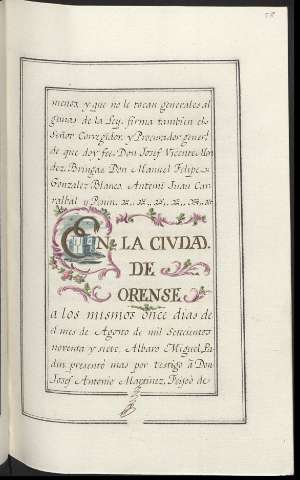 58
menor, y que no le tocan generales al
gunas de la Ley. firma tambien el
Señor Corregidor, y Procurador generl.
de que doy fee. Don Josef Vicente Men
dez. Bringas. Don Manuel Felipe
Gonzalez Blanco. Antoni Juan Car
ralbal y Poun.
EN LA CIVDAD.
DE
ORENSE
a los mismos once dias de
el mes de Agosto de mil Setecientos
noventa y siete, Albaro Miguel Pa
din presentó mas por testigo â Don
Josef Antonio Martinez, Feijoó de